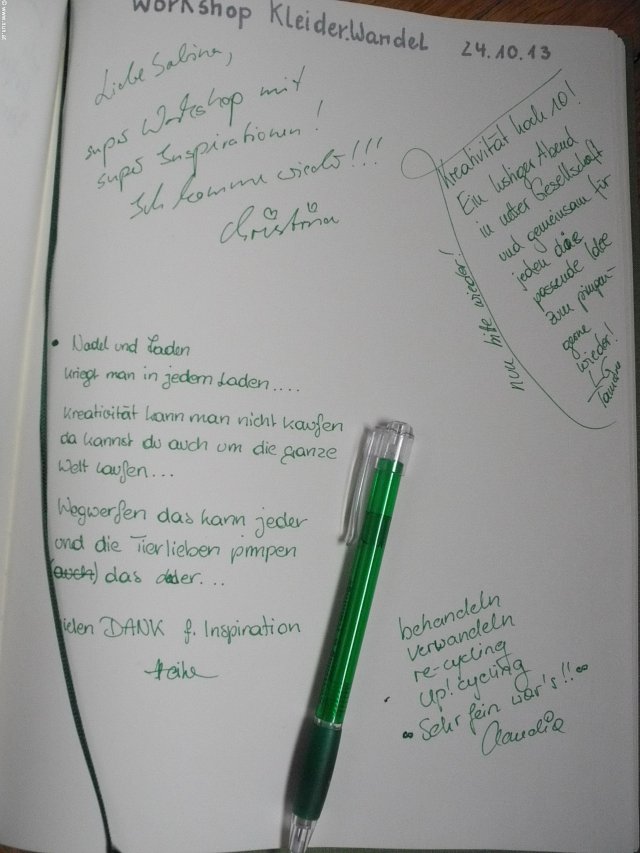 Workshop Kleider.Wandel 24.10.13
Liebe Sabina,
super Workshop mit
super Inspirationen!
Ich komme wieder!!!
Christina
Kreativität hoch 10!
Ein lustiger Abend
in netter Gesellschaft
und gemeinsam für
jeden die
passende Idee
zum pimpen -
gerne
wieder!
LG
nur bitte wieder!
• Nadel und Faden
kriegt man in jedem Laden....
Kreativität kann man nicht kaufen
da kannst du auch um die ganze
Welt laufen...
Wegwerfen das kann jeder
und die Tierlieben pimpen
(auch) das Leder...
vielen DANK f. Inspiration
Heike
behandeln
verwandeln
re-cycling
up!cycling
Sehr fein war's!!
Claudia